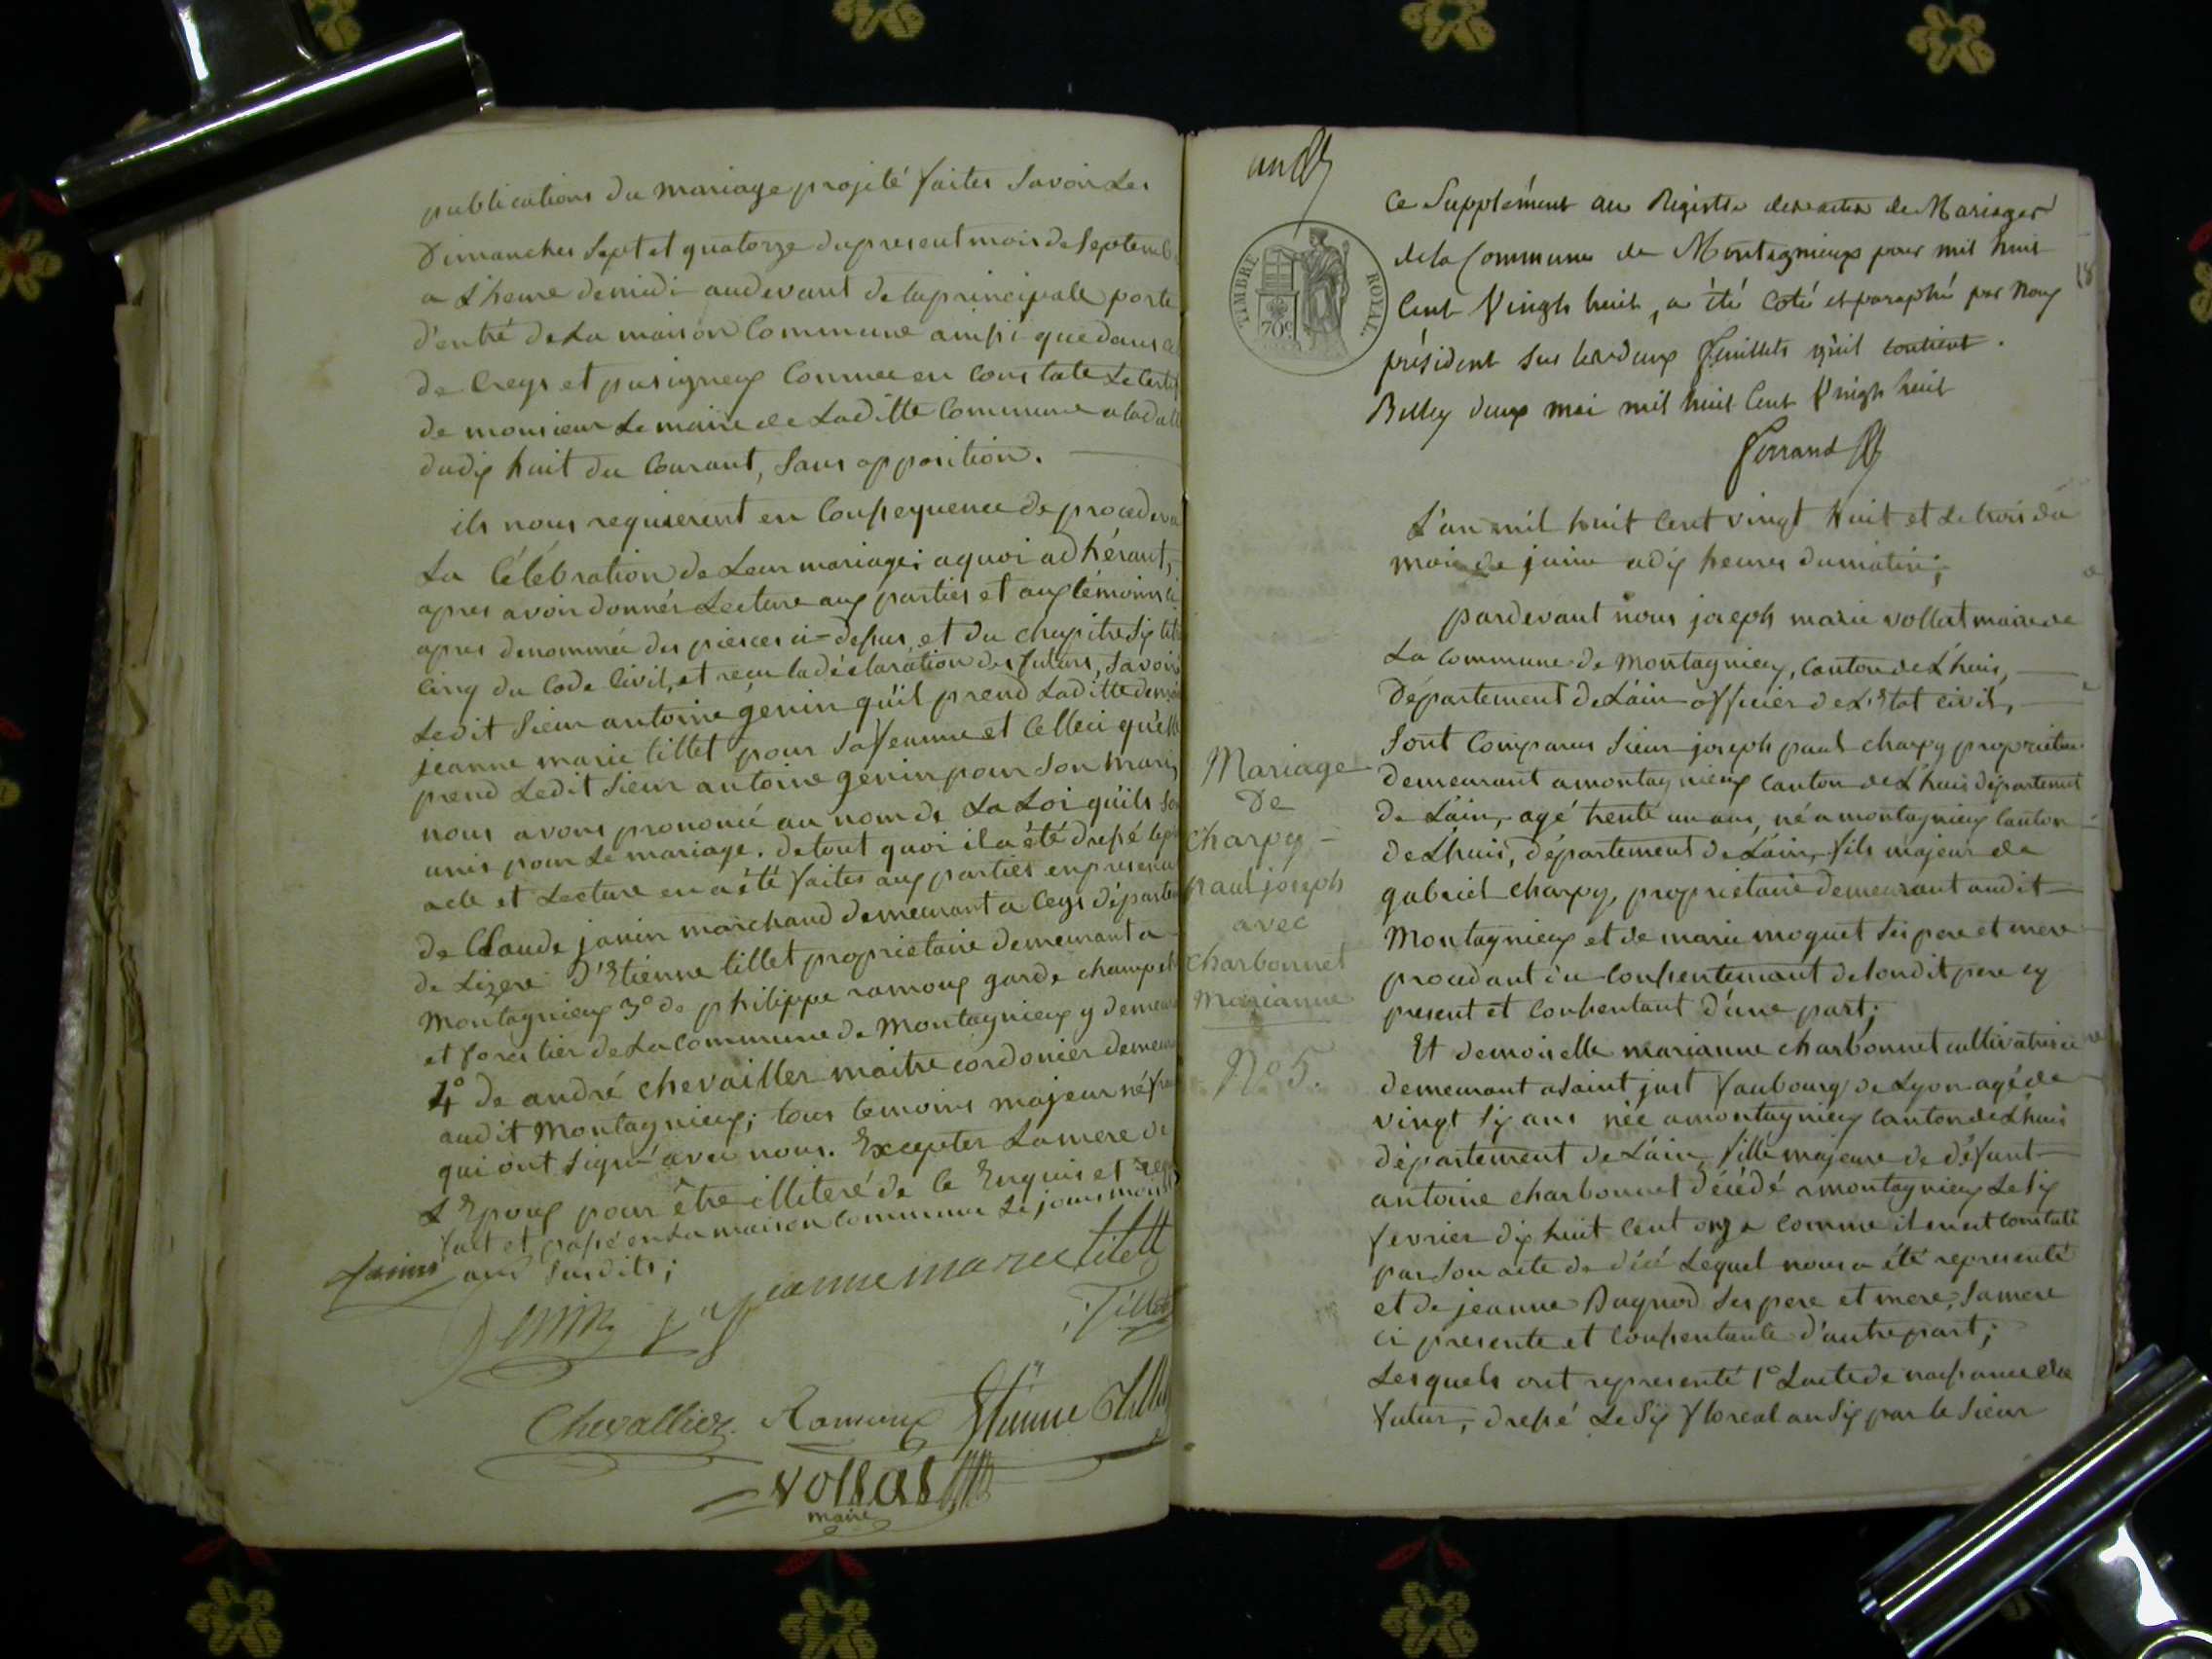 publications du mariage projeté faites Savoir Les
Dimanches Sept et quatorze du present mois de Septemb
a L'heure de midi audevant de la principalle porte
d'entré de La maison Commune ainsi que dans
de Creys et pusigneux Comme en Constate Le Certif
de monsieur Le maire de Laditte Commune a la dat
dudix huit du Courant, Sans opposition.
ils nous requierent en Consequence de proceder a
La Célébration de Leur mariage; aquoi adhérant,
apres avoir donnés Lecture aux parties et aux témoins ci
apres denommée des pieces ci-dessus, et du chapitre Six tit
Cinq du Code Civil, et reçu la déclaration des futurs, Savoir
Ledit Sieur antoine genin qu'il prend Laditte demoi
jeanne marie tillet pour Sa femme et Celleci qu'elle
prend Ledit Sieur antoine genin pour Son mari,
nous avons prononcé au nom de La Loi qu'ils So
unis pour Le mariage. de tout quoi il a été dressé le p
acte et Lecture en a été faites aux parties en presence
de Claude janin marchand demeurant a Ceys départe
de Lizere D'Etienne tillet proprietaire demeurant a
Montagnieux 3º de philippe ramoux garde champet
et forestier de La Commune de Montagnieux y demeu
4º de andré chevailler maitre cordonier demeur
audit Montagnieux; tous temoins majeur né fra
qui ont Signé avec nous. Excepter La mere de
L'Epoux pour être illiteré de Ce Enquis et req
fait et passé en La maison Commune Le jours mois
ans Susdits;
Janin
genin jeanne marie tilett
Tillet
Chevallier Ramoux Etienne Tillet
Vollat
maire
un
Ce Supplément au Régistre des actes de Mariages
de la Commune de Montagnieux pour mil huit
Cent Vingt huit, a été Coté et paraphé par Nous
président Sur les deux feuillets qu'il contient.
Belley deux mai mil huit Cent Vingt huit
Ferrand
TIMBRE ROYAL.
70c
L'an mil huit Cent vingt huit et Le trois du
mois de juin a dix heures du matin;
pardevant nous joseph marie vollat maire de
La Commune de Montagnieux, Canton de L'huis,
Département de L'ain officier de L'Etat civil,
Sont Comparus Sieur joseph paul charpy proprietaire
demeurant a montagnieux Canton de L'huis département
de L'ain, agé trente un ans, né a montagnieux Canton
de L'huis, département de L'ain, fils majeur de
gabriel charpy, proprietaire demeurant audit
Montagnieux et de marie moquet Ses pere et mere
procedant du Consentement de Sondit pere cy
present et Consentant d'une part;
Et demoiselle marianne charbonnet cultivatrice
demeurant a Saint just faubourg de Lyon agé de
vingt Six ans née a montagnieux Canton de L'huis
département de L'ain, fille majeure de défunt
antoine charbonnet décédé a montagnieux Le Six
fevrier dix huit Cent onze comme il en est constaté
par Son acte de décé Lequel nous a été representé
et de jeanne Bugnod Ses pere et mere, Sa mere
ci presente et Consentante d'autre part;
Lesquels ont representé 1º L'acte de naissance du
futur, dressé Le Six floreal an Six par le Sieur
Mariage
De
Charpy
paul joseph
avec
Charbonnet
marianne
Nº 5.